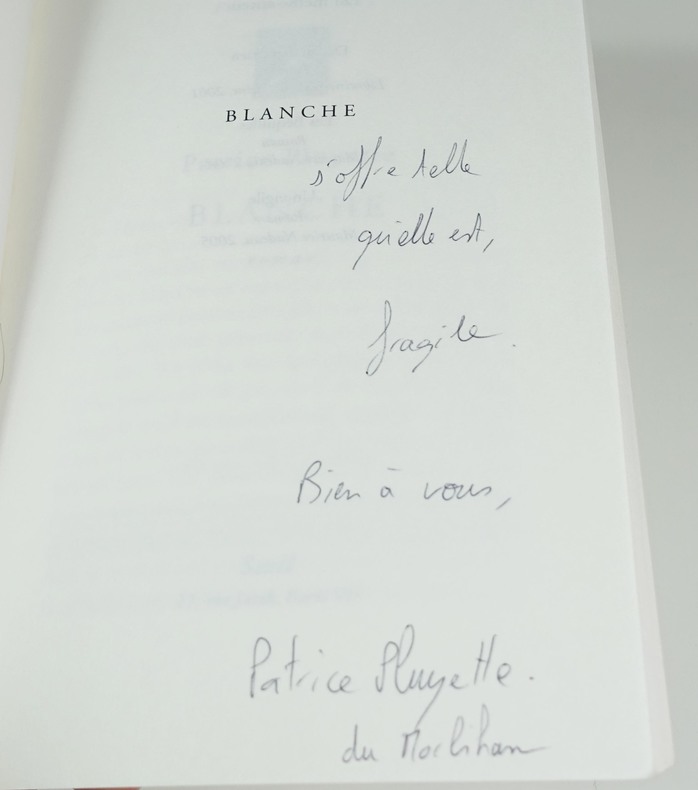 BLANCHE
s'offre telle
qu'elle est,
fragile.
Bien à vous,
Patrice Pluyette.
du Morbihan